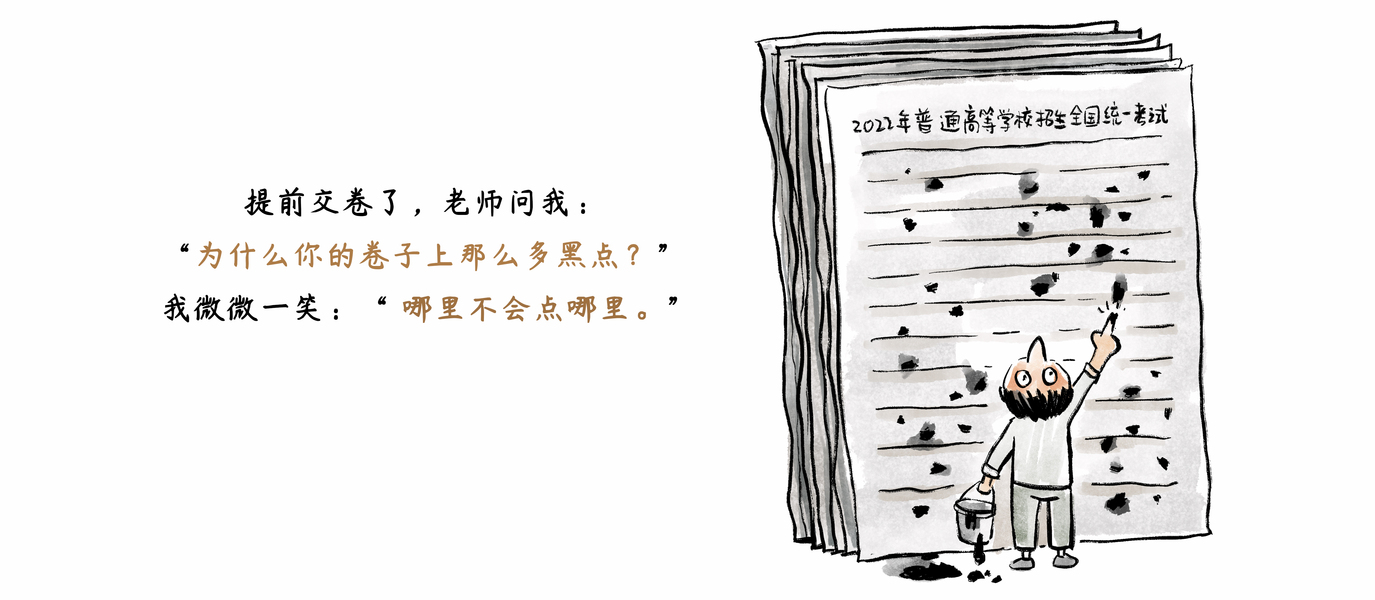 提前交卷了，老师问我：
“为什么你的卷子上那么多黑点？”
我微微一笑：“哪里不会点哪里。”
2022年普通高等学校招生全国统一考试